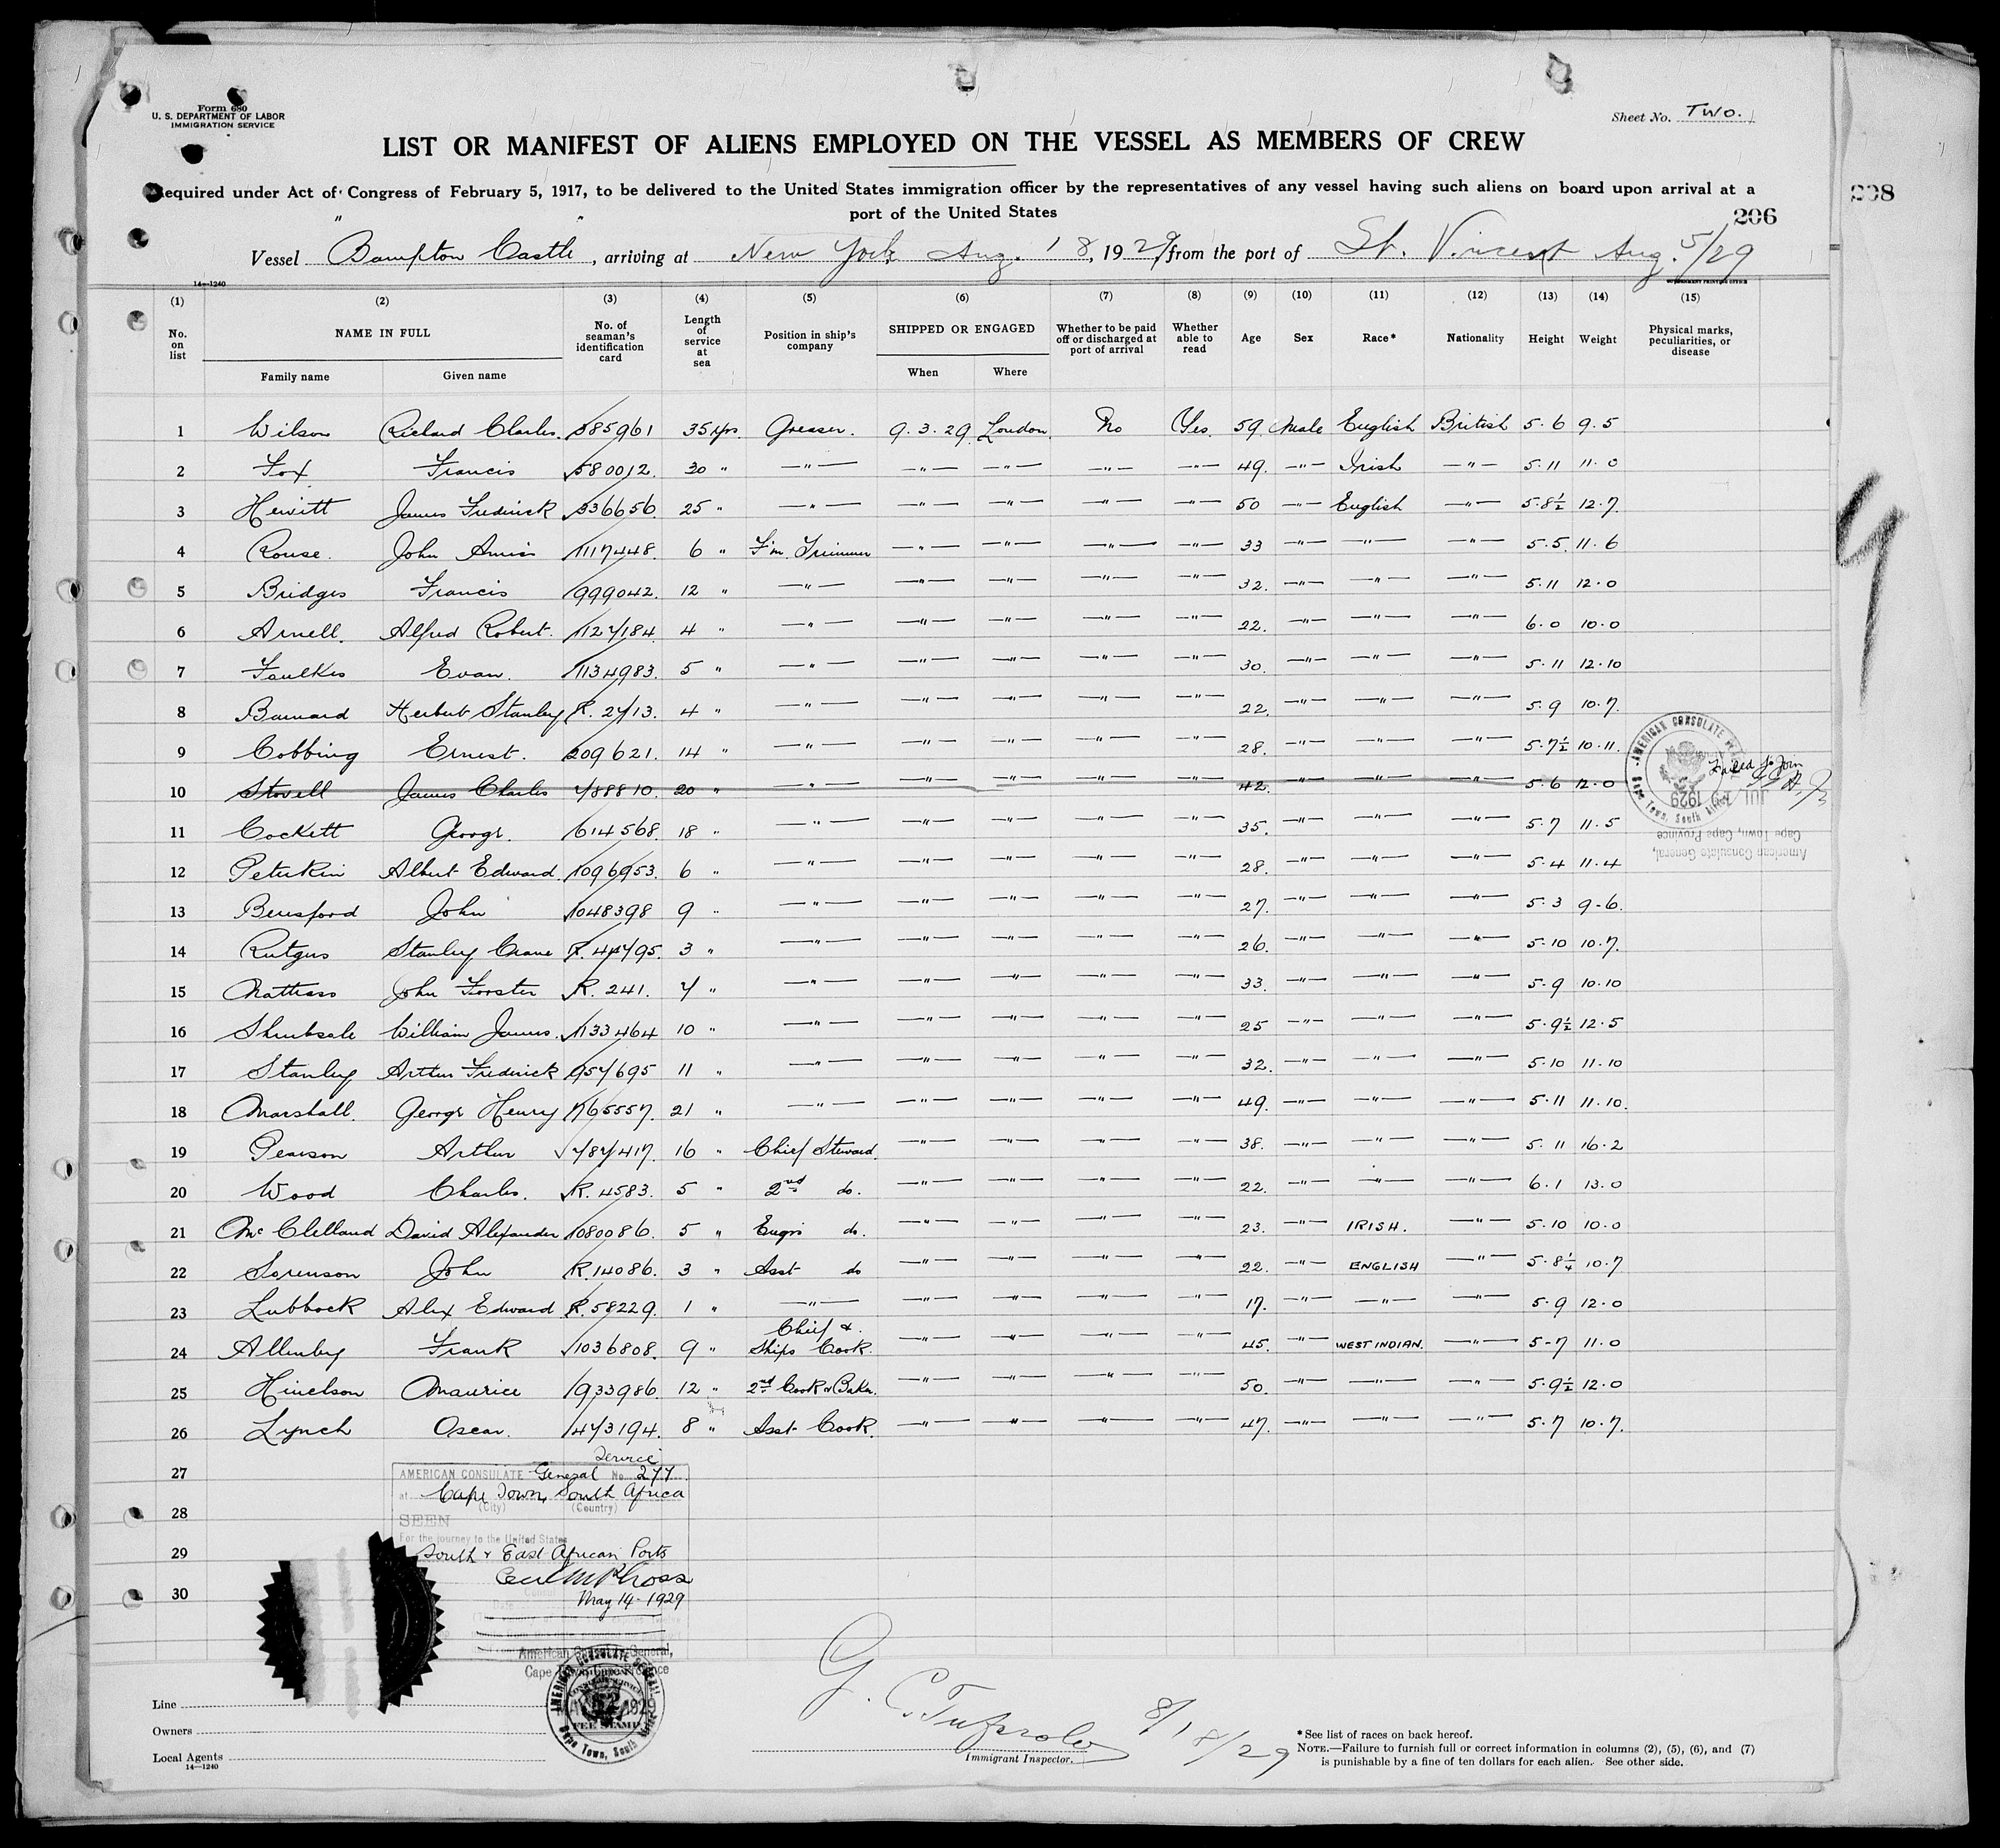 Form 680
U. S. DEPARTMENT OF LABOR
IMMIGRATION SERVICE
Sheet No. TWO.
LIST OR MANIFEST OF ALIENS EMPLOYED ON THE VESSEL AS MEMBERS OF CREW
Required under Act of Congress of February 5, 1917, to be delivered to the United States immigration officer by the representatives of any vessel having such aliens on board upon arrival at a
port of the United States
206
208
Vessel "Bampton Castle", arriving at New York Aug. 18, 1929, from the port of St. Vincent Aug. 5/29
14—1240
(1) (2) (3) (4) (5) (6) (7) (8) (9) (10) (11) (12) (13) (14) (15)
No. on list NAME IN FULL No. of seaman's identification card Length of service at sea Position in ship's company SHIPPED OR ENGAGED Whether to be paid off or discharged at port of arrival Whether able to read Age Sex Race* Nationality Height Weight Physical marks, peculiarities, or disease
Family name Given name When Where
1 Wilson Richard Charles. 585961 35 yrs. Greaser. 9.3.29 London. No Yes. 59 Male English British 5.6 9.5
2 Fox Francis 580012. 30 " —"— —"— —"— —"— —"— 49. —"— Irish —"— 5.11 11.0
3 Hewitt James Frederick 336656. 25 " —"— —"— —"— —"— —"— 50 —"— English —"— 5.8½ 12.7.
4 Rouse. John Amiss 1117448. 6 " F'm. Trimmer —"— —"— —"— —"— 33 —"— —"— —"— 5.5. 11.6
5 Bridges Francis 999042. 12 " —"— —"— —"— —"— —"— 32. —"— —"— —"— 5.11 12.0
6 Arnell. Alfred Robert. 1127184. 4 " —"— —"— —"— —"— —"— 22. —"— —"— —"— 6.0 10.0
7 Faulkes Evan. 1134983. 5 " —"— —"— —"— —"— —"— 30. —"— —"— —"— 5.11 12.10
8 Barnard Herbert Stanley R. 2713. 4 " —"— —"— —"— —"— —"— 22. —"— —"— —"— 5.9 10.7.
9 Cobbing Ernest. 209621. 14 " —"— —"— —"— —"— —"— 28. —"— —"— —"— 5.7½ 10.11.
10 Stovell James Charles 788810. 20 " —"— —"— —"— —"— —"— 42. —"— —"— —"— 5.6 12.0 Failed to Join
11 Cockett George. 614568. 18 " —"— —"— —"— —"— —"— 35. —"— —"— —"— 5.7 11.5
12 Peterkin Albert Edward. 1096953. 6 " —"— —"— —"— —"— —"— 28. —"— —"— —"— 5.4 11.4
13 Beresford John 1048398 9 " —"— —"— —"— —"— —"— 27. —"— —"— —"— 5.3 9-6.
14 Rutgers Stanley Crane R. 44795. 3 " —"— —"— —"— —"— —"— 26. —"— —"— —"— 5-10 10.7.
15 Mattress John Forster R. 241. 7 " —"— —"— —"— —"— —"— 33. —"— —"— —"— 5-9 10.10
16 Shrubsole William James. 1133464 10 " —"— —"— —"— —"— —"— 25 —"— —"— —"— 5.9½ 12.5
17 Stanley Arthur Frederick 957695 11 " —"— —"— —"— —"— —"— 32. —"— —"— —"— 5.10 11.10
18 Marshall. George Henry 765557. 21 " —"— —"— —"— —"— —"— 49. —"— —"— —"— 5.11 11.10.
19 Pearson Arthur 787417. 16 " Chief Steward. —"— —"— —"— —"— 38. —"— —"— —"— 5.11 16.2
20 Wood Charles. R. 4583. 5 " 2nd do. —"— —"— —"— —"— 22. —"— —"— —"— 6.1 13.0
21 McClelland David Alexander 1080086. 5 " Engrs do. —"— —"— —"— —"— 23. —"— IRISH. —"— 5.10 10.0
22 Sorenson John R. 14086. 3 " Asst do —"— —"— —"— —"— 22. —"— ENGLISH —"— 5.8¼ 10.7
23 Lubbock Alex Edward R. 58229. 1 " —"— —"— —"— —"— —"— 17. —"— —"— —"— 5.9 12.0
24 Allenby Frank 1036808. 9 " Chief & Ships Cook. —"— —"— —"— —"— 45. —"— WEST INDIAN. —"— 5-7 11.0
25 Hinelson Maurice 933986. 12 " 2nd Cook & Baker. —"— —"— —"— —"— 50. —"— —"— —"— 5.9½ 12.0
26 Lynch Oscar. 473194. 8 " Asst Cook. —"— —"— —"— —"— 47. —"— —"— —"— 5.7 10.7.
27
28
29
30
AMERICAN CONSULATE GENERAL
Cape Town, South Africa
JUL 1929
American Consulate General,
Cape Town, Cape Province
Service
AMERICAN CONSULATE General No. 277
at Cape Town, South Africa
(City) (Country)
SEEN
For the journey to the United States
South & East African Ports
Cecil M P Cross
May 14-1929
American Consulate General,
Cape Town, Cape Province
AMERICAN CONSULATE GENERAL
FEE STAMP
Cape Town, South Africa
Line
Owners
Local Agents
14—1240
8/18/29
Immigrant Inspector.
*See list of races on back hereof.
NOTE.—Failure to furnish full or correct information in columns (2), (5), (6), and (7)
is punishable by a fine of ten dollars for each alien. See other side.